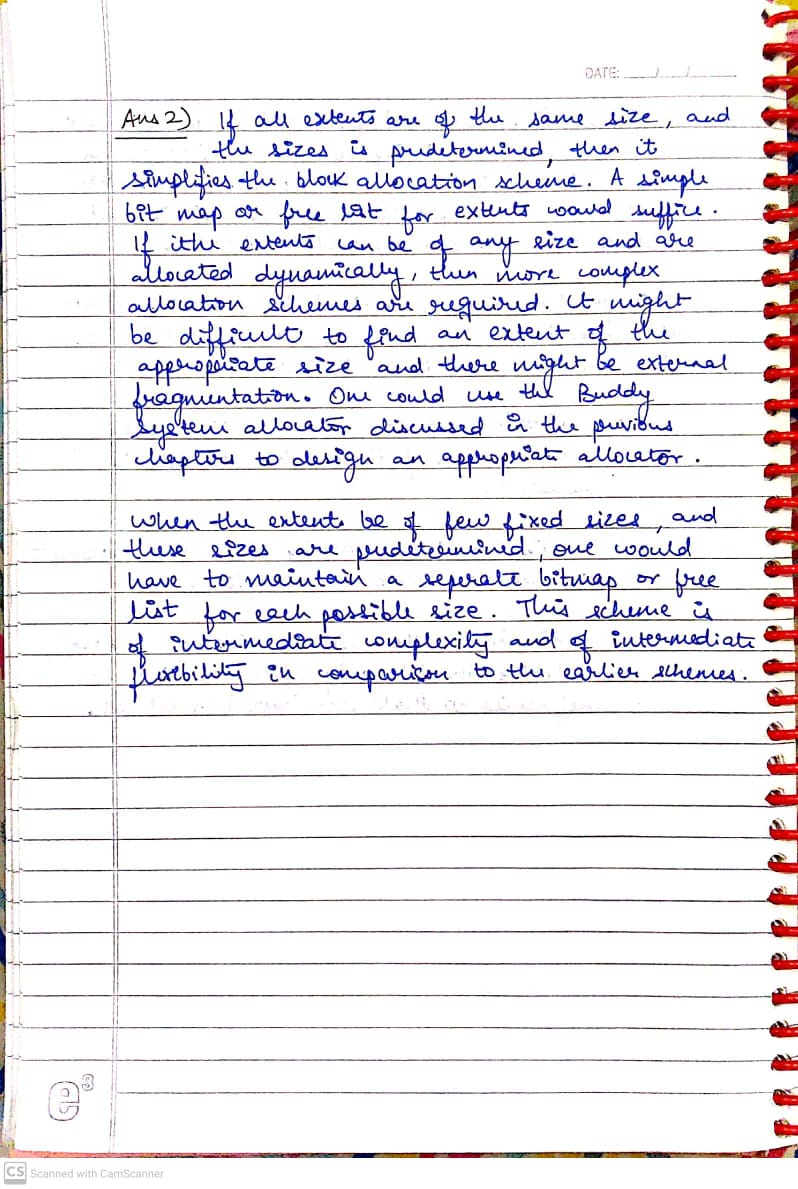 DATE: ___/___/___
Ans 2) If all extents are of the same size, and
the sizes is predetermined, then it
simplifies the block allocation scheme. A simple
bit map or free list for extents would suffice.
If ithe extents can be of any size and are
allocated dynamically, then more complex
allocation schemes are required. It might
be difficult to find an extent of the
appropriate size and there might be external
fragmentation. One could use the Buddy
system allocator discussed in the previous
chapters to design an appropriate allocator.
When the extents be of few fixed sizes, and
these sizes are predetermined, one would
have to maintain a seperate bitmap or free
list for each possible size. This scheme is
of intermediate complexity and of intermediate
flexibility in comparison to the earlier schemes.
e3
CS Scanned with CamScanner